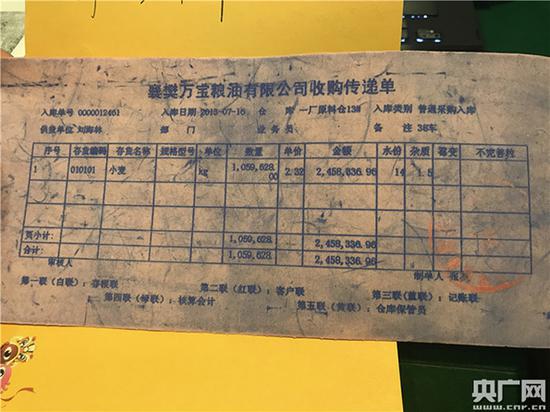 襄樊万宝粮油有限公司收购传递单
入库单号 0000012461 入库日期 2013-07-16 仓 库 一厂原料仓13# 入库类别 普通采购入库
供货单位 刘海林 部 门 业务员 备注 38车
序号 存货编码 存货名称 规格型号 单位 数量 单价 金额 水份 杂质 霉变 不完善粒
1 010101 小麦 kg 1,059,628.00 2.32 2,458,336.96 14 1.5
页小计: 1,059,628. 2,458,336.96
合计: 1,059,628. 2,458,336.96
审核人 制单人
第一联(白联):存根联 第二联(红联):客户联 第三联(蓝联):记账联
第四联(绿联):核算会计 第五联(黄联):仓库保管员
央广网
www.cnr.cn